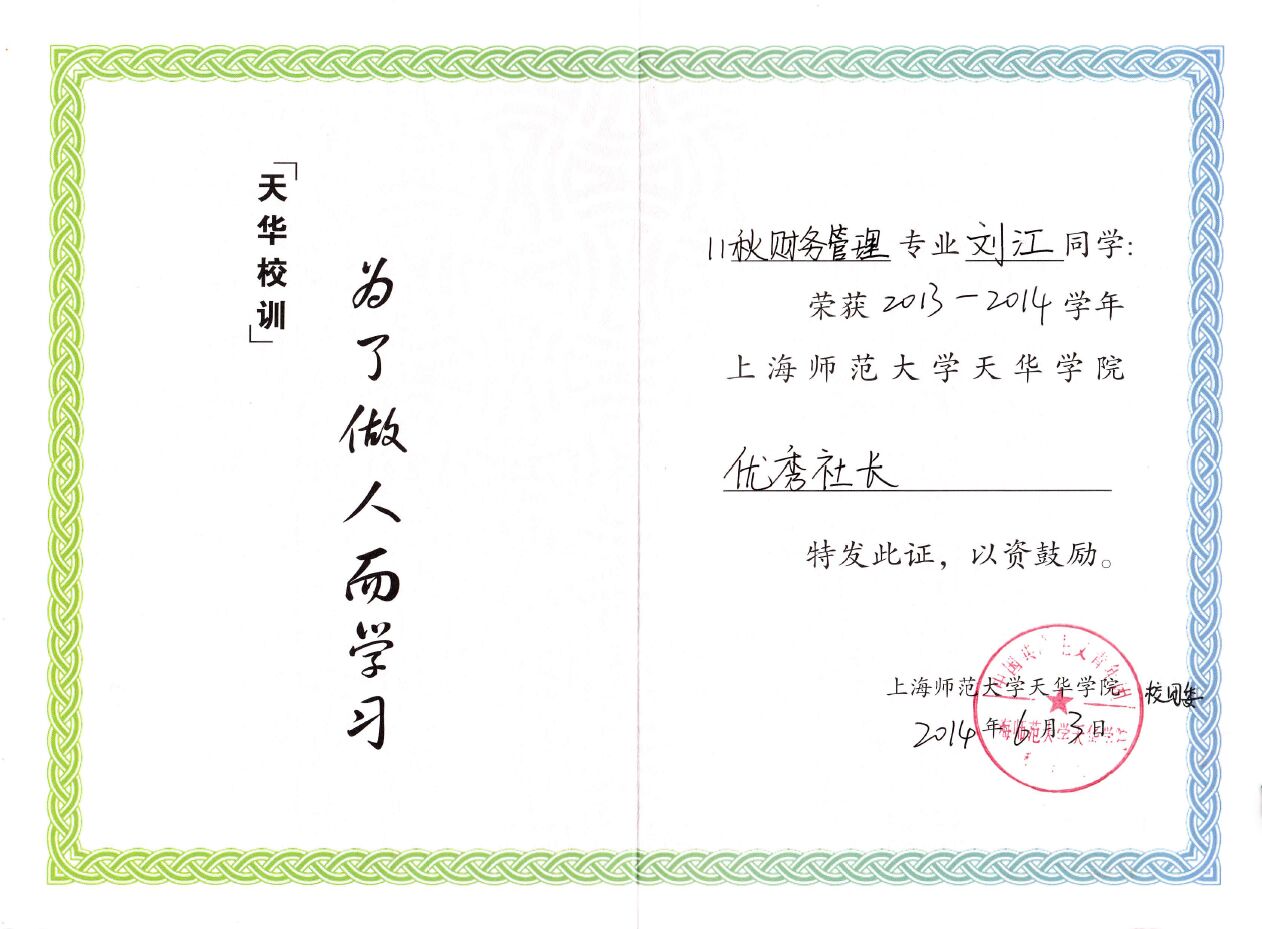 「天华校训」
为了做人而学习
11秋财务管理专业刘江同学:
荣获2013-2014学年
上海师范大学天华学院
优秀社长
特发此证，以资鼓励。
上海师范大学天华学院 校团委
2014年6月3日